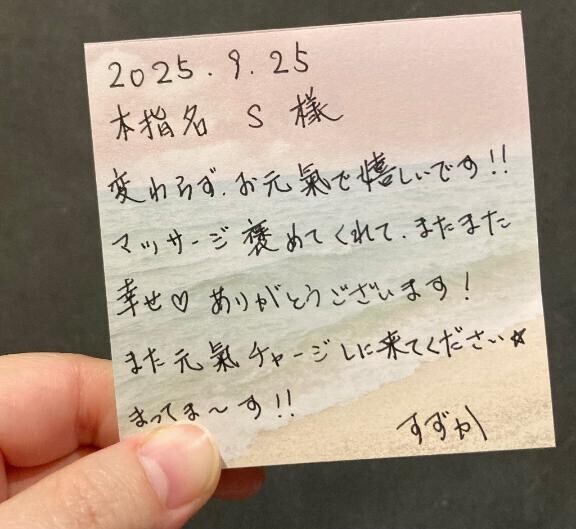 2025.9.25
本指名 S 様
変わらず、お元氣で嬉しいです!!
マッサージ褒めてくれて、またまた
幸せ♡ ありがとうございます!
また元氣チャージしに来てください☆
まってま〜す!!
すずか